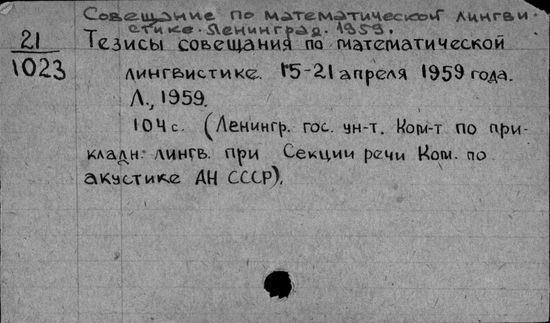 Совещание по математической лингви-
стике. Ленинград. 1959.
21 Тезисы совещания по математической
1023 лингвистике. 15-21 апреля 1959 года.
Л., 1959.
104 с. (Ленингр. гос. ун-т. Ком-т по при-
кладн. лингв. при Секции речи Ком. по
акустике АН СССР).